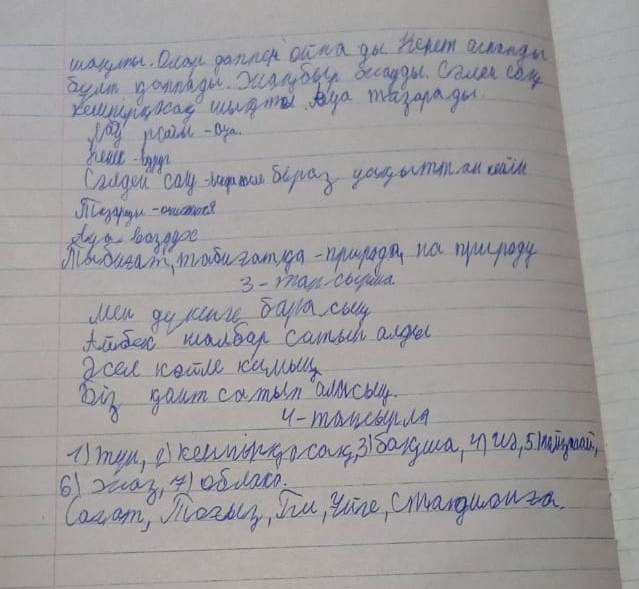 шақты. Олар доппен ойна ды Керет аспанды
бұлт қаптады. Жаңбыр жауды. Сәлден соң
кемпірқосақ шықты Ауа тазарады.
Кенет - вдруг
Сәлден соң - біраз уақыттан кейін
Тазарды - очистился
Ауа - воздух
Табиғат, табиғатқа - природа, на природу
3 - тапсырма
Мен дүкенге бара сың
Айбек шалбар сатып алды
Әсел көйлек кимың
Біз қант сатып аласың.
4 - тапсырма
1) түн, 2) кемпірқосақ, 3) бақша, 4) из, 5)
6) жаз, 7) облако.
Сағат, Тоғыз, Үйге, Стадионға.